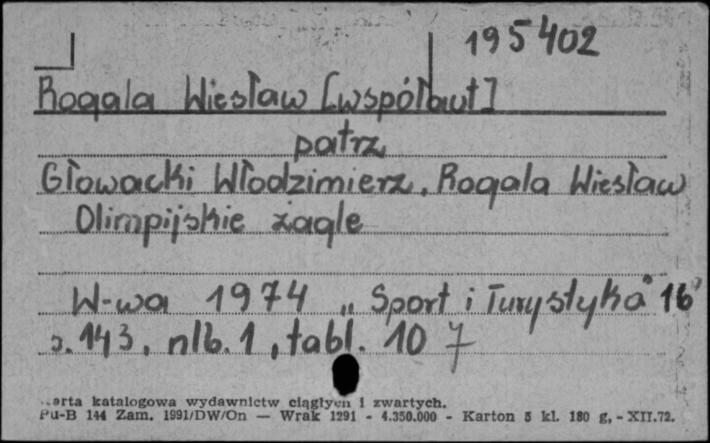 195402
Rogala Wiesław [współaut]
patrz
Głowacki Włodzimierz, Rogala Wiesław
Olimpijskie żagle
W-wa 1974 „Sport i Turystyka" 16°
s. 143, nlb. 1, tabl. 10 7
karta katalogowa wydawnictw ciągłych i zwartych.
Pu-B 144 Zam. 1991/DW/On — Wrak 1291 - 4.350.000 - Karton 5 kl. 180 g, - XII.72.